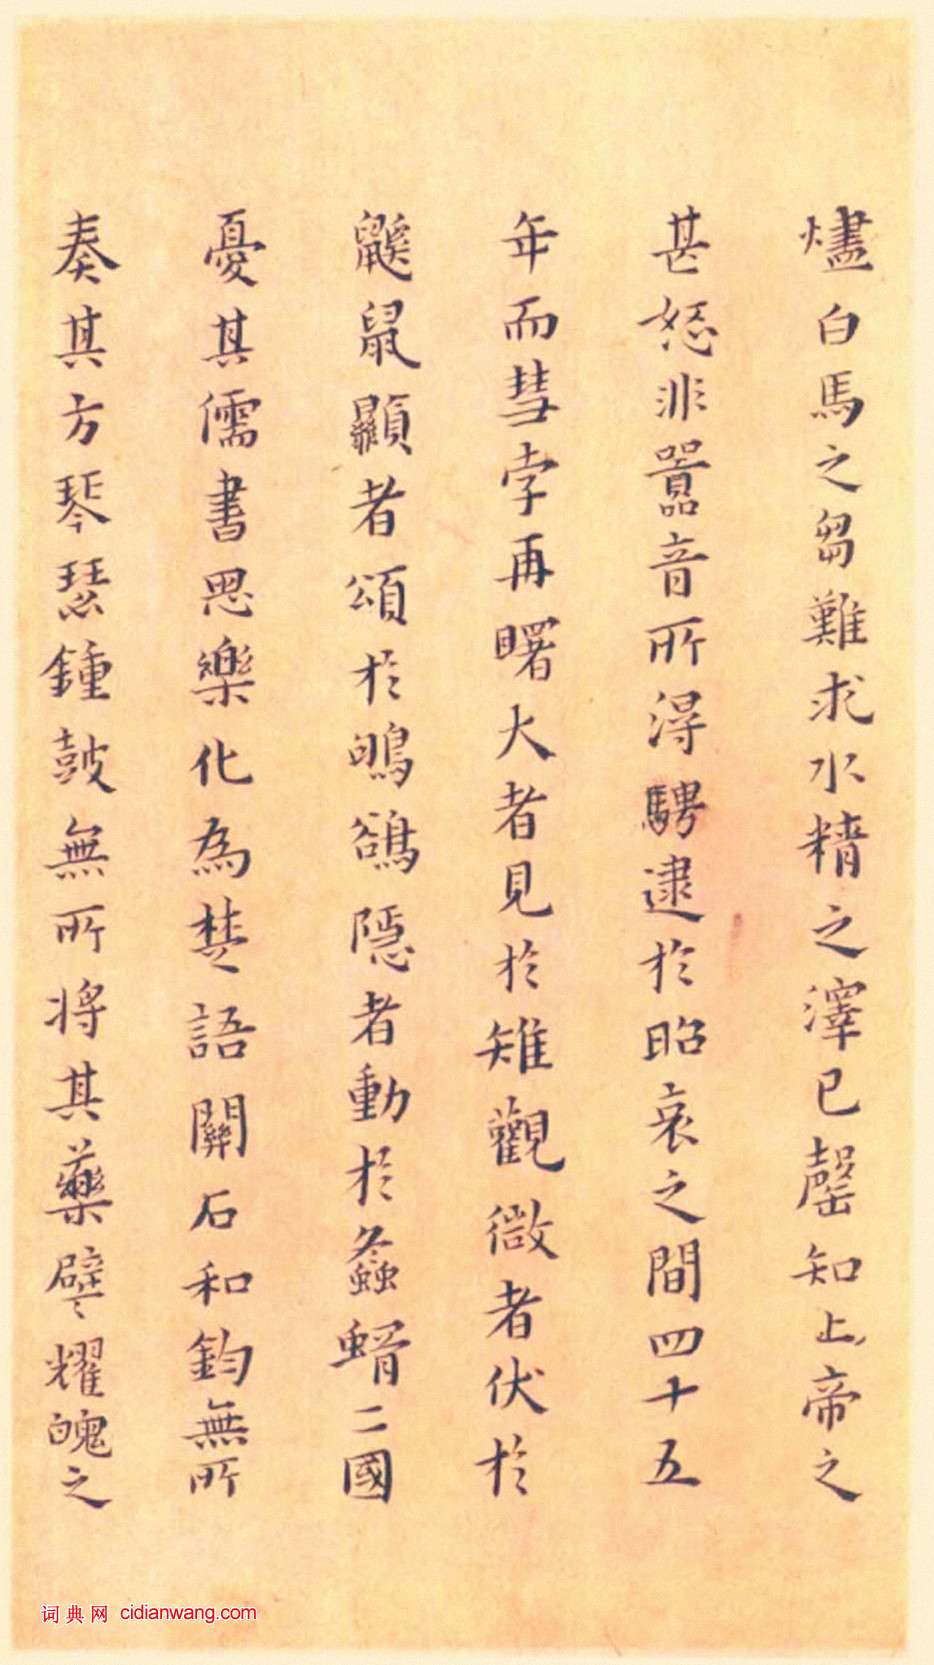 燼白馬之芻難求水精之澤已罄知上帝之
甚怒非囂音所得騁逮於昭哀之間四十五
年而彗孛再曙大者見於雉觀微者伏於
鼷鼠顯者頌於鴝鵒隱者動於螽蝑二國
憂其儒書思樂化為楚語關石和鈞無所
奏其方琴瑟鍾鼓無所將其藥譬耀魄之
词典网 cidianwang.com